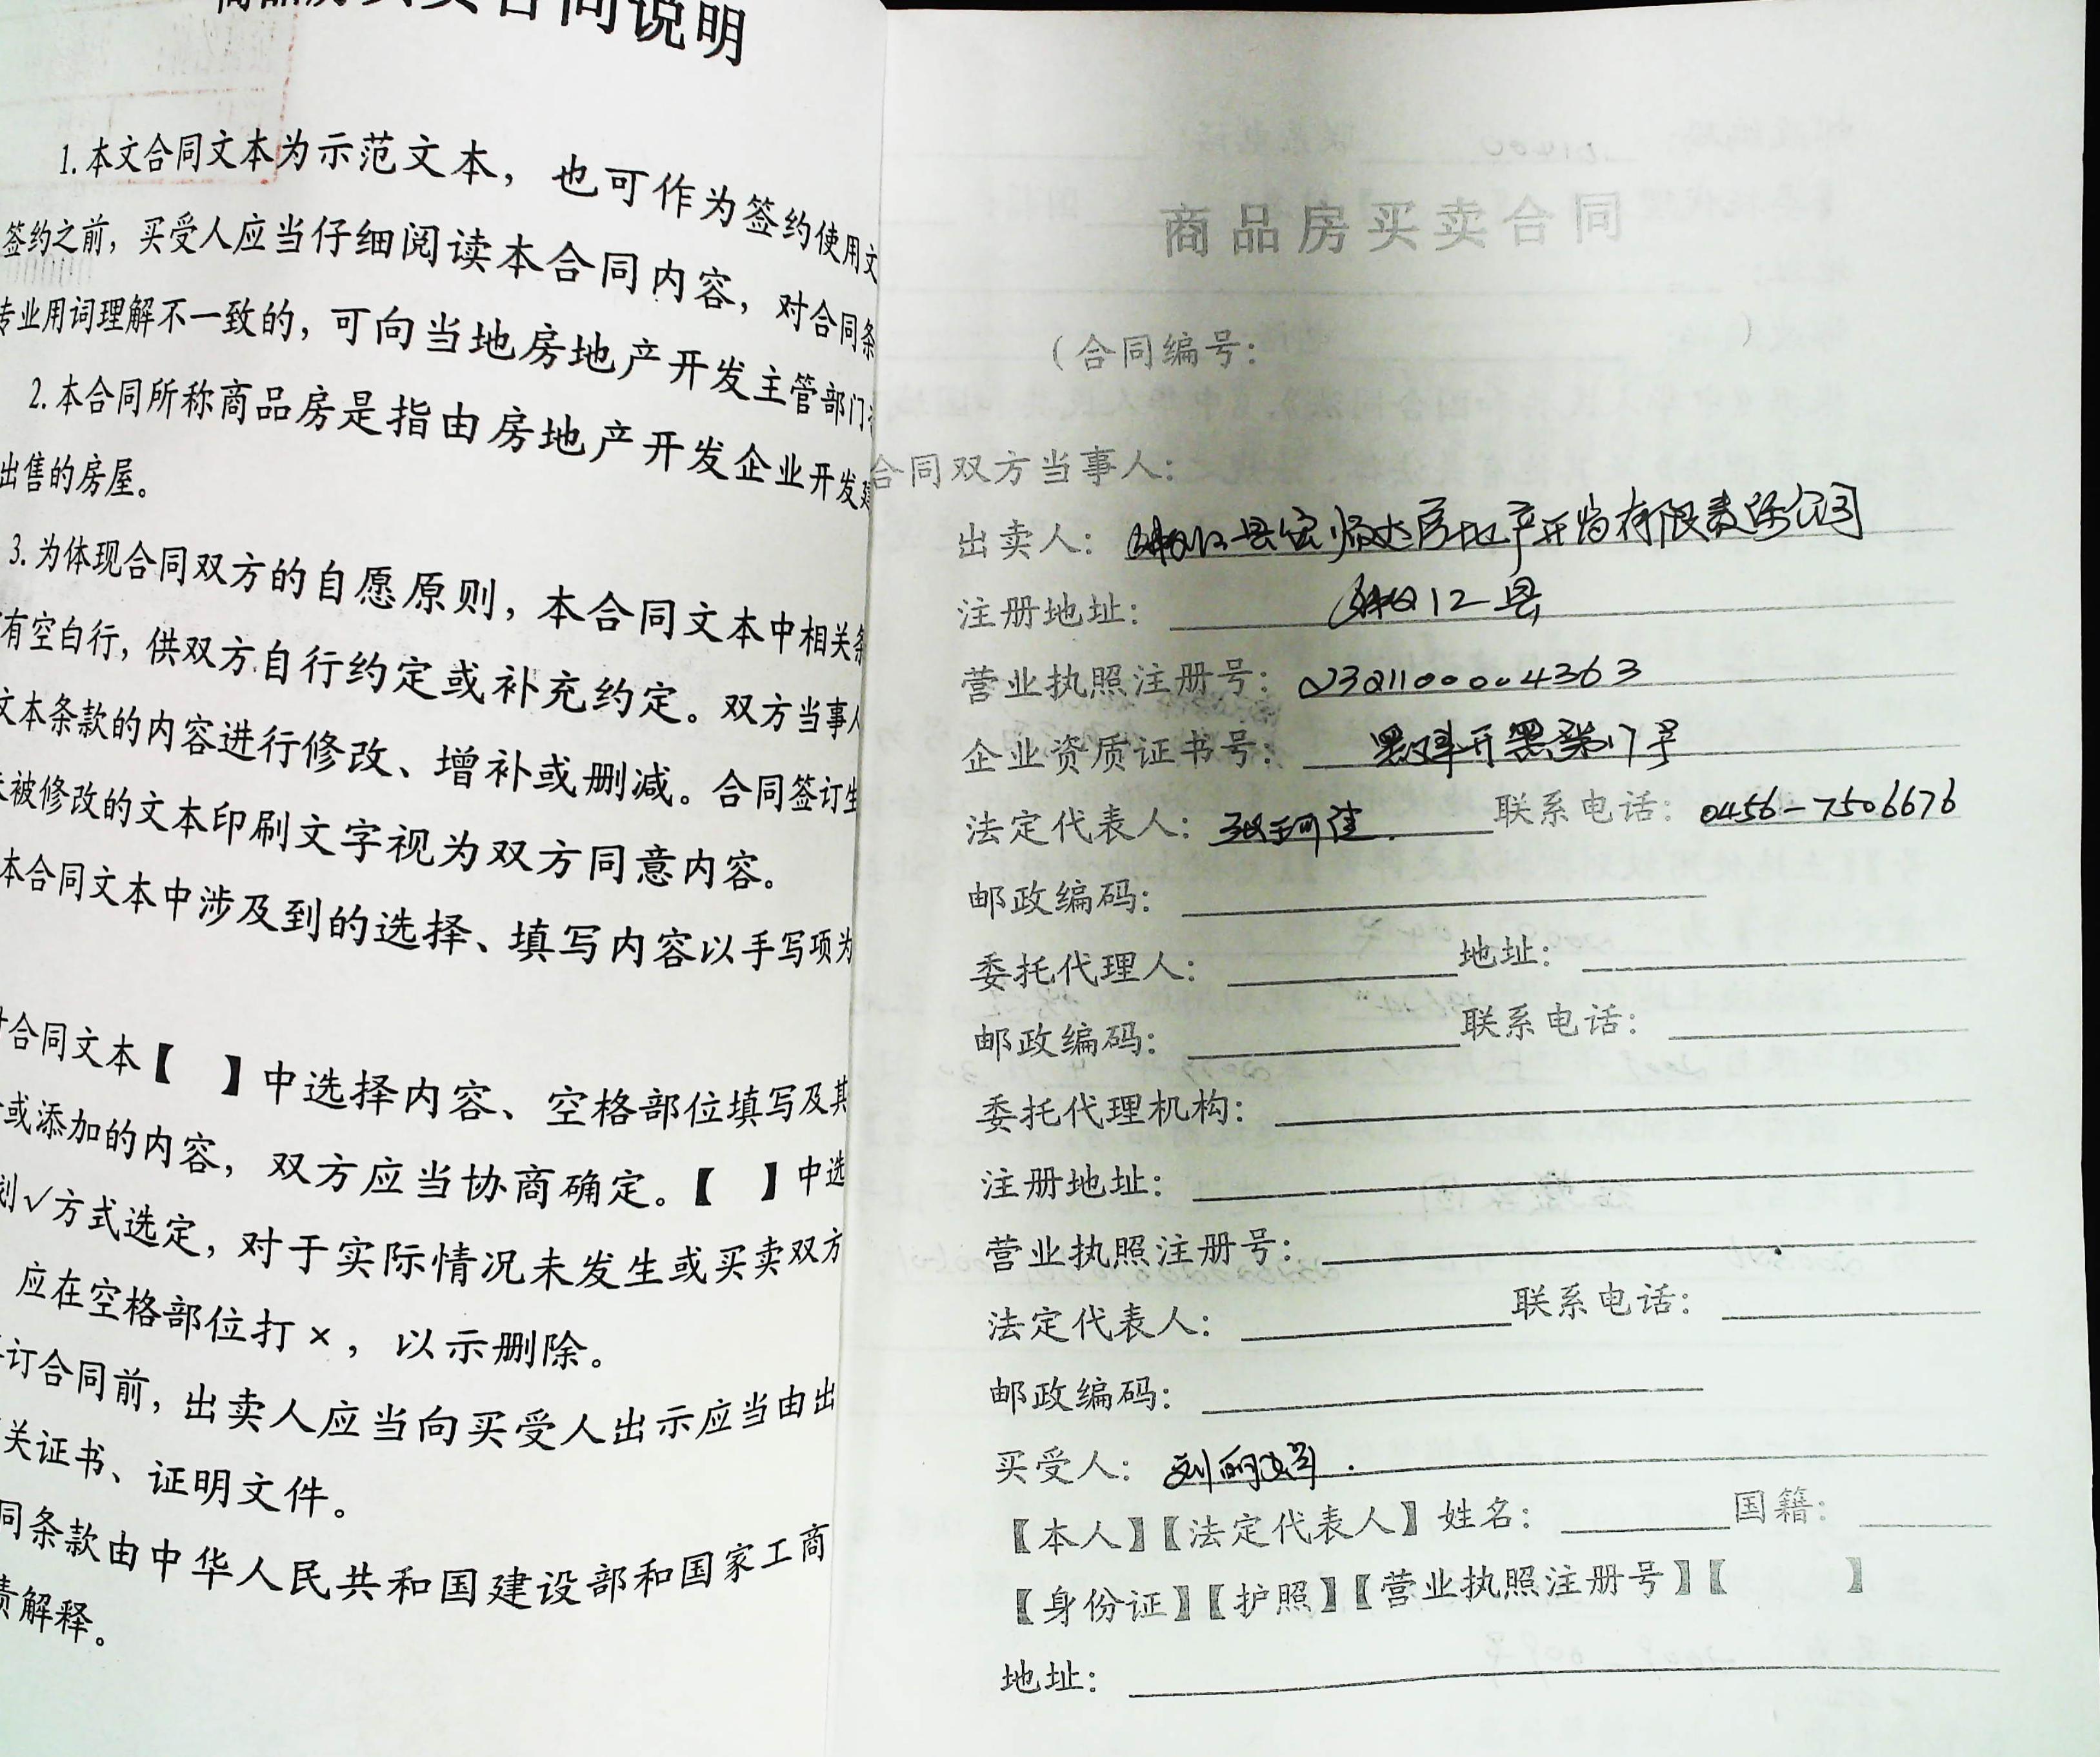 商品房买卖合同说明
1.本文合同文本为示范文本，也可作为签约使用文
签约之前，买受人应当仔细阅读本合同内容，对合同条
专业用词理解不一致的，可向当地房地产开发主管部门
2.本合同所称商品房是指由房地产开发企业开发建
出售的房屋。
3.为体现合同双方的自愿原则，本合同文本中相关条
有空白行，供双方自行约定或补充约定。双方当事人
文本条款的内容进行修改、增补或删减。合同签订生
被修改的文本印刷文字视为双方同意内容。
本合同文本中涉及到的选择、填写内容以手写项为
合同文本【 】中选择内容、空格部位填写及其
或添加的内容，双方应当协商确定。【 】中选
划√方式选定，对于实际情况未发生或买卖双方
应在空格部位打×，以示删除。
订合同前，出卖人应当向买受人出示应当由出
关证书、证明文件。
同条款由中华人民共和国建设部和国家工商
责解释。
商品房买卖合同
（合同编号：
合同双方当事人：
出卖人：房地产开发有限责任公司
注册地址：县
营业执照注册号：2321100004363
企业资质证书号：
法定代表人：联系电话：0456-7506676
邮政编码：
委托代理人：地址：
邮政编码：联系电话：
委托代理机构：
注册地址：
营业执照注册号：
法定代表人：联系电话：
邮政编码：
买受人：刘
【本人】【法定代表人】姓名：国籍：
【身份证】【护照】【营业执照注册号】【 】
地址：